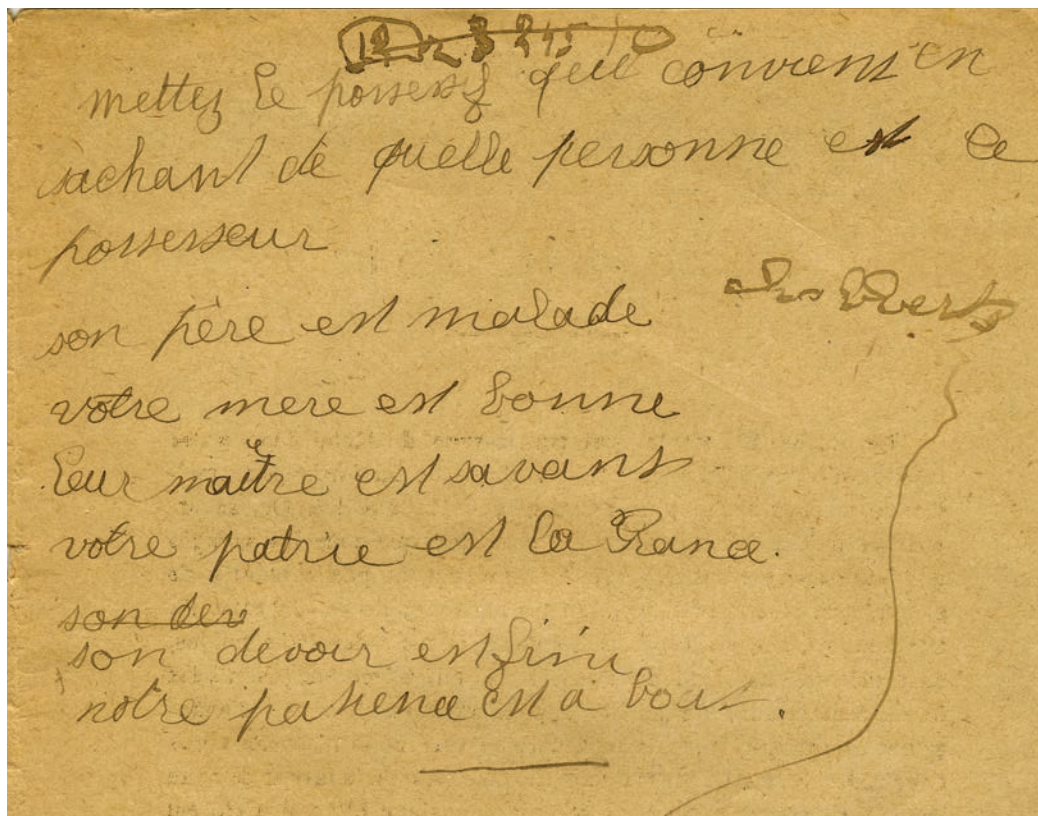 mettez le possessif qui convient en
sachant de quelle personne est le
possesseur
son père est malade
votre mere est bonne
leur maître est savant
votre patrie est la France.
son dev
son devoir est fini
notre patience est a bout.